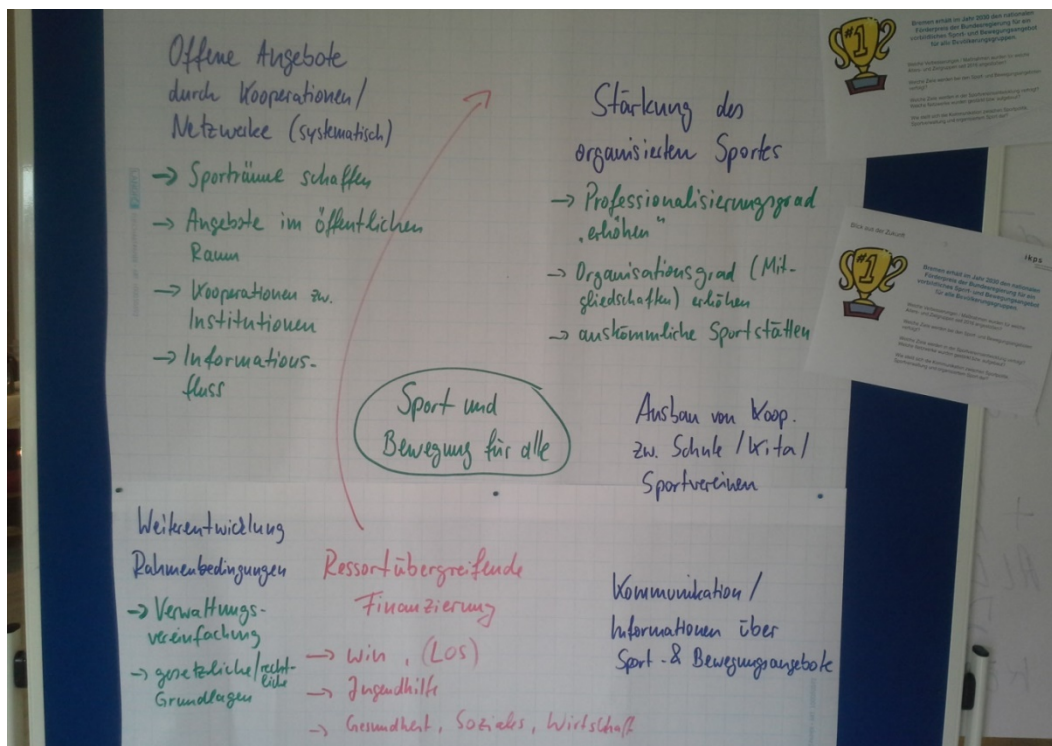 Offene Angebote
durch Kooperationen/
Netzwerke (systematisch)
-> Sporträume schaffen
-> Angebote im öffentlichen
Raum
-> Kooperationen zw.
Institutionen
-> Informations-
fluss
Stärkung des
organisierten Sportes
-> Professionalisierungsgrad
"erhöhen"
-> Organisationsgrad (Mit-
gliedschaften) erhöhen
-> auskömmliche Sportstätten
Sport und
Bewegung für alle
Ausbau von Koop.
zw. Schule / Kita /
Sportvereinen
Weiterentwicklung
Rahmenbedingungen
-> Verwaltungs-
vereinfachung
-> gesetzliche/recht-
liche
Grundlagen
Ressortübergreifende
Finanzierung
-> Win, (LOS)
-> Jugendhilfe
-> Gesundheit, Soziales, Wirtschaft
Kommunikation /
Informationen über
Sport- & Bewegungsangebote
#1
Bremen erhält im Jahr 2030 den nationalen
Förderpreis der Bundesregierung für ein
vorbildliches Sport- und Bewegungsangebot
für alle Bevölkerungsgruppen.
Blick aus der Zukunft
ikps
#1
Bremen erhält im Jahr 2030 den nationalen
Förderpreis der Bundesregierung für ein
vorbildliches Sport- und Bewegungsangebot
für alle Bevölkerungsgruppen.